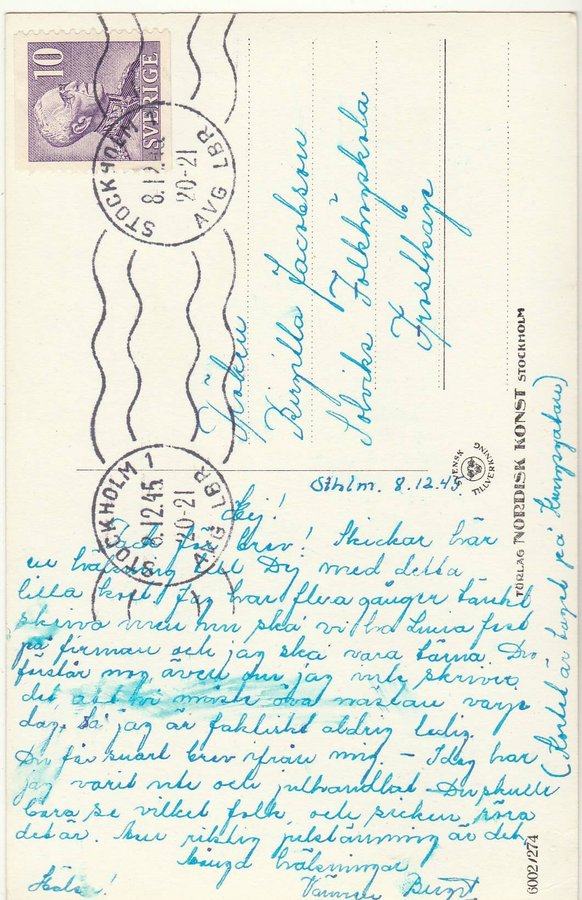 10
SVERIGE
STOCKHOLM 1
8.12.45
20-21
AVG LBR
STOCKHOLM 1
8.12.45
20-21
AVG LBR
Fröken
Jacobson
Solviks Folkhögskola
Frostkåge
SVENSK TILLVERKNING
FÖRLAG NORDISK KONST STOCKHOLM
6002/274
Sthlm. 8.12.45
Hej!
Tack för brev! Skickar här
en hälsning till Dig med detta
lilla kort. Jag har flera gånger tänkt
skriva men nu ska vi ha Lucia fest
på firman och jag ska vara tärna. Du
förstår nog, även om jag inte skriver
det, att vi måste öva nästan varje
dag. Så jag är faktiskt aldrig ledig.
Du får snart brev ifrån mig. - Idag har
jag varit ute och julhandlat. Du skulle
bara se vilket folk, och sicken röra
det är. Men riktig julstämning är det.
Många hälsningar
Hälsa! Vännen Birgit
(Kortet är taget på Kungsgatan)